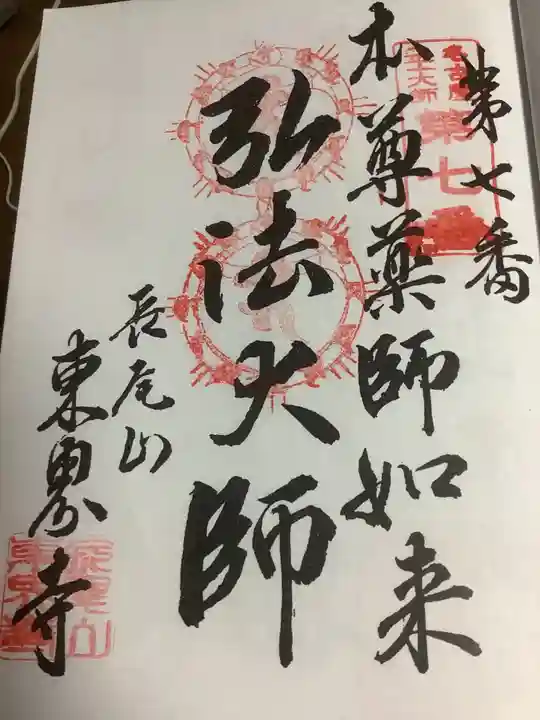 第七番
名古屋
第七番
本尊薬師如来
弘法大師
長尾山
東界寺
長尾山
東界寺